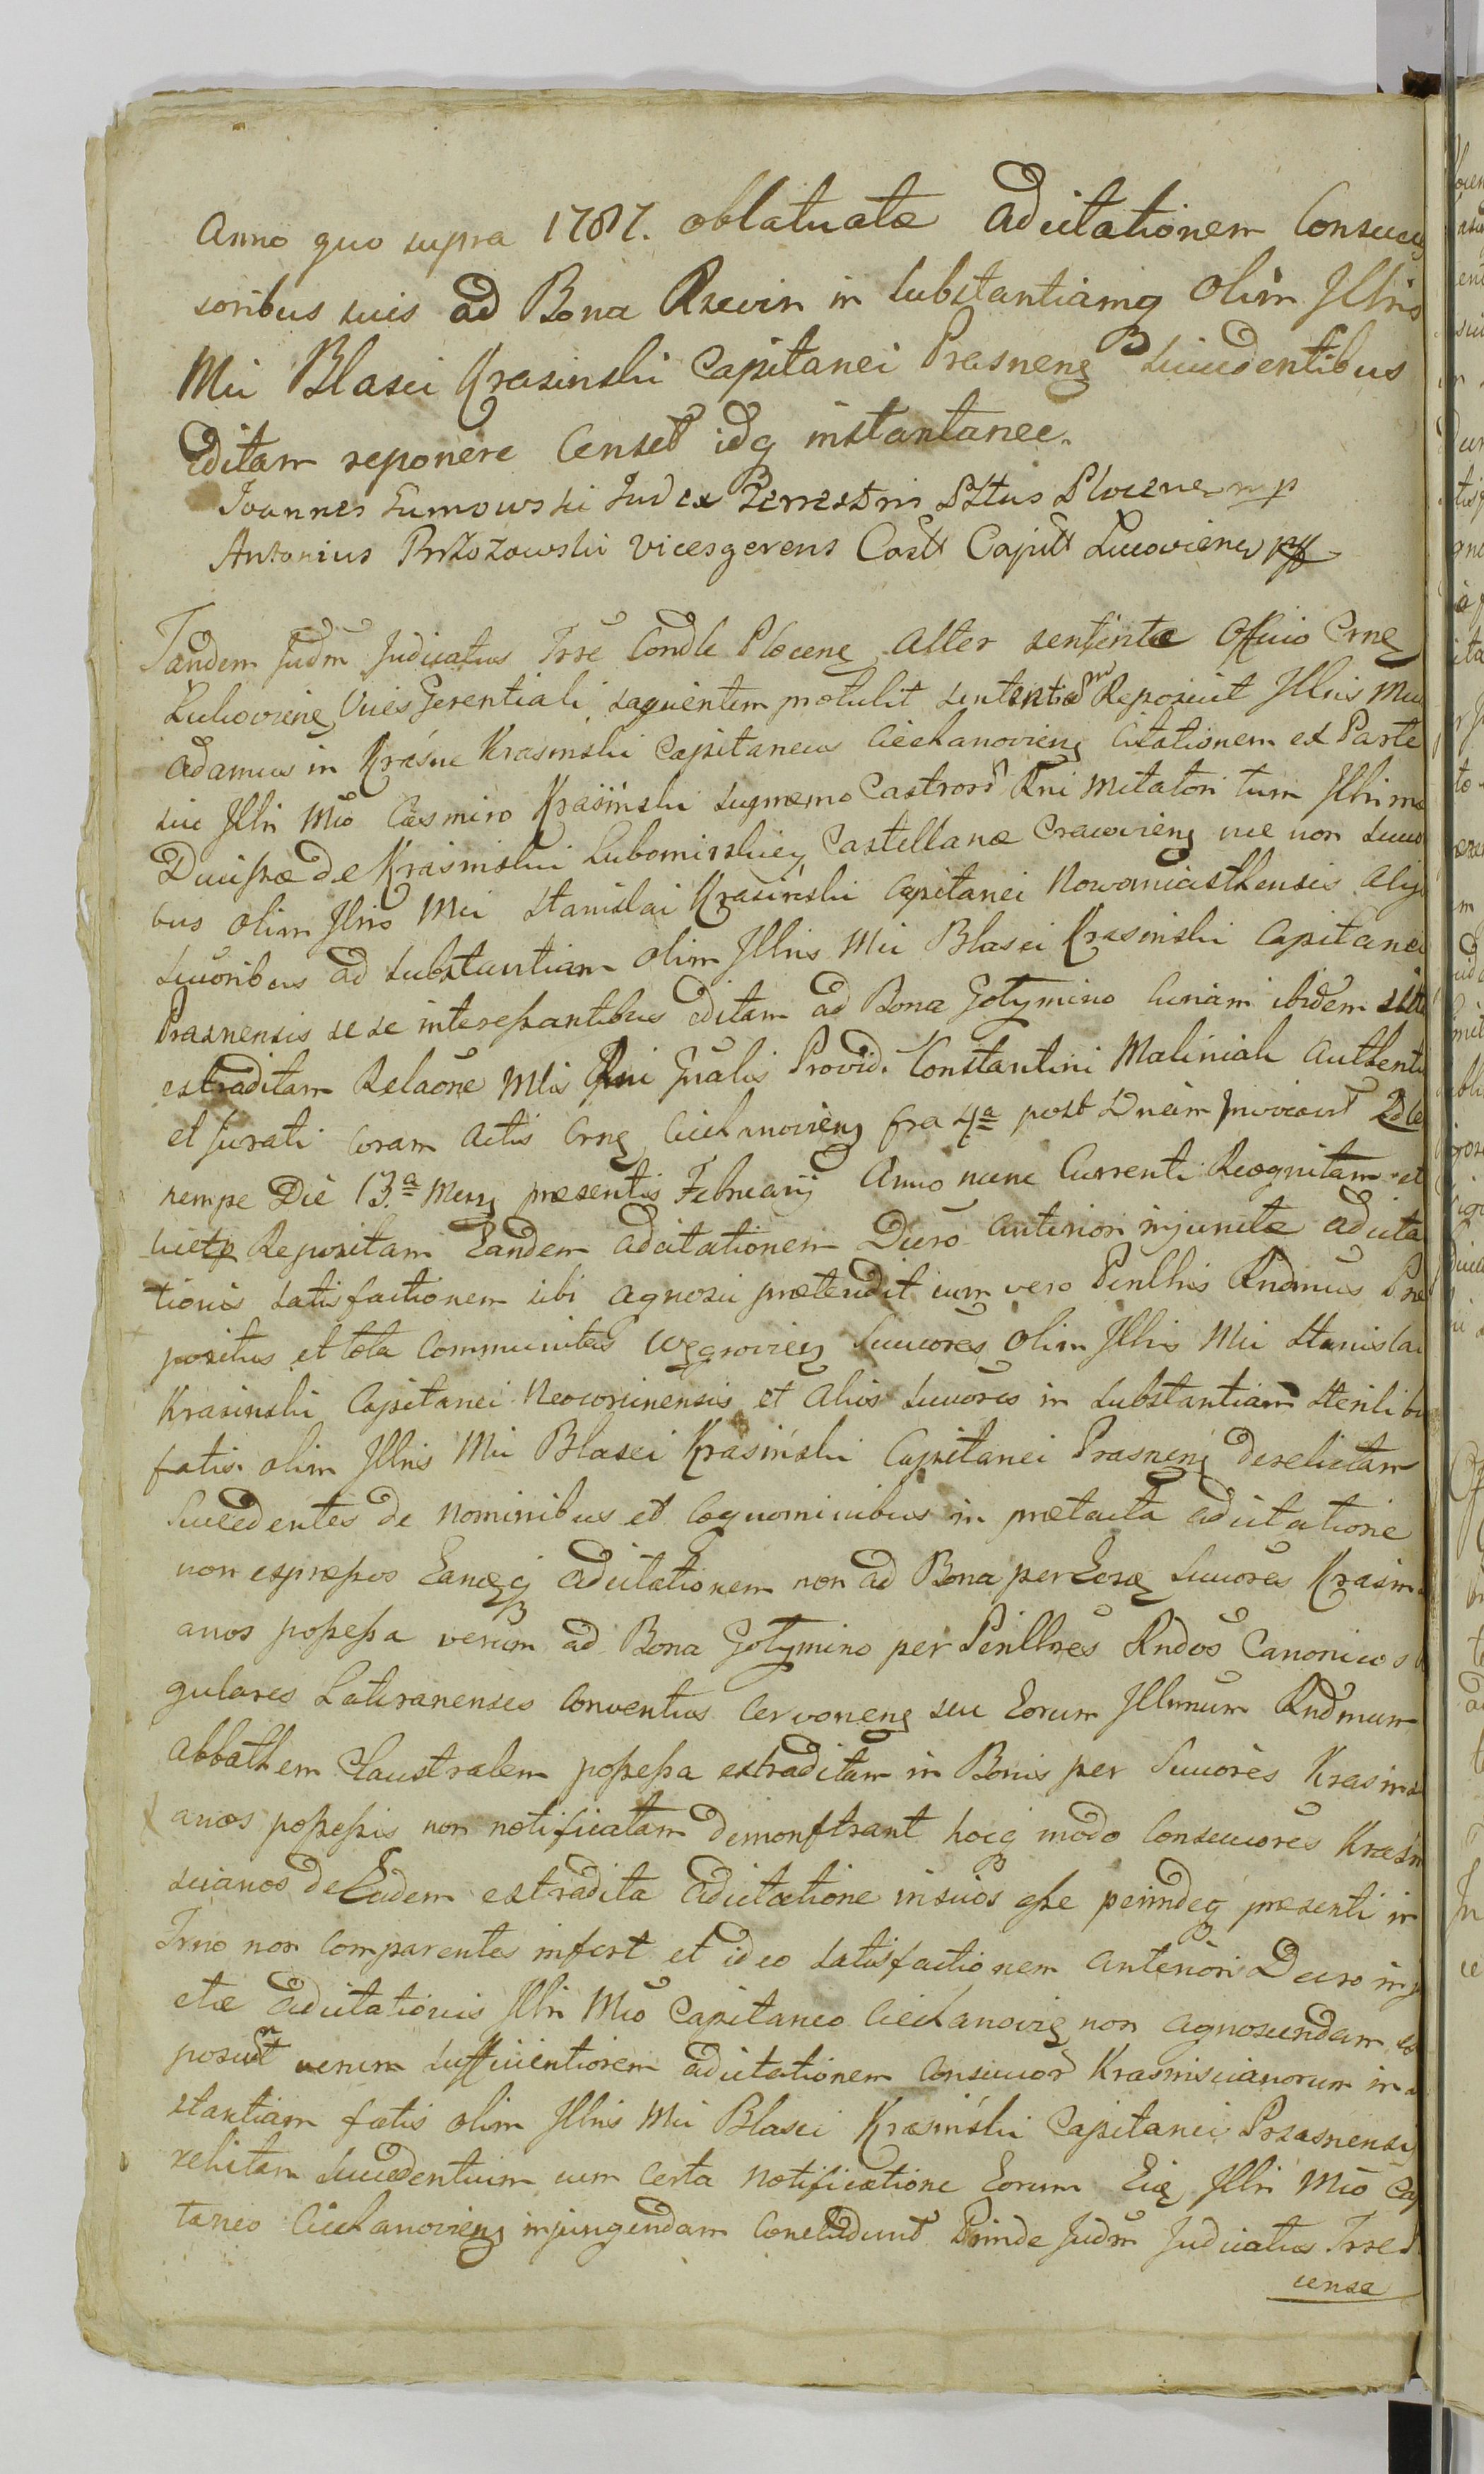 Anno quo supra 1787. oblatuatæ adcitationem Consucces
soribus suis ad Bona Rzewin in substantiamq olim Jllris
Mci Blasei Krasinski Capitanei Prasneng succedentibus
Editam reponere Censet idq instantanee.
Joannes Sumowski Judex Terrestris Pltus Plocens mp
Antonius Brzozowski vicesgerens Cast Capitt
Tandem Judm Judicatus Trre Condle Plocens alter sententæ Officio Crns
vices Gerentiali sequentem protulit sententiam Reposuit Jllris Mcus
Adamus in Krasne Krasinski Capitaneus Ciechanoviens Citationem ex Parte
sui Jllri Mco Casmiro Krasinski supremo Castror Rni Metatori tum Jllri
de Krasinskie Lubomirskiey Castellanæ Cracoviens nec non succ
bus olim Jllris Mci Stanislai Krasinski Capitanei Nowomiasthensis aliy
succoribus ad substantiam olim Jllris Mci Blasei Krasinski Capitanei
Prasnensis se se interessantibus Editam ad Bona Gotymino Curiam ibidem
extraditam Relaone Mtis Rni Gnalis Provid. Constantini Maliniak Authenti
et Jurati Coram actis Crns Ciechanoviens fra 4ta post Dncam Invocavit
nempe Die 13.a Mens præsentis Februarij Anno nunc Currenti Recognitam et
Repositam Eandem adcitationem Decro anteriori injunctæ adcita
tionis satisfactionem sibi agnosci prætendit cum vero Perillris Rndmus Præ
positus et tota Communitas Wegroviens Succores olim Jllris Mci Stanislai
Krasinski Capitanei Neocorcinensis et alios succores in substantiam sterilibus
fatis olim Jllris Mci Blasei Krasiński Capitanei Prasnens derelictam
Succedentes de nominibus et Cognominibus in prætacta adcitatione
non expressos Eamq adcitationem non ad Bona per Eosd Succores Krasin
anos possessa verum ad Bona Gotymino per Perillres Rndos Canonicos
gulares Lateranenses Conventus Cervonens seu Eorum Jllrmum Rndmum
abbathem Claustralem possessa extraditam in Bonis per Succores Krasins
anos possessis non notificatam demonstrant hocq modo Consuccores Krasin
scianos de Eadem extradita adcitatione inscios esse perindeq præsenti in
Trno non Comparentes infert et ideo satisfactionem anterioris Decro inju
ctæ adcitationis Jllri Mco Capitaneo Ciechanovien non agnoscendam
posunt verum sufficientiorem adcitationem Consuccor Krasinscianorum in
stantiam fatis olim Jllris Mci Blasei Krasiński Capitanei Przasnensis
relictam succedentium cum Certa notificatione Eorum Jllri Mco Capi
taneo Ciechanoviens injungendam Concludunt Perinde Judm Judicatus Trre
cense